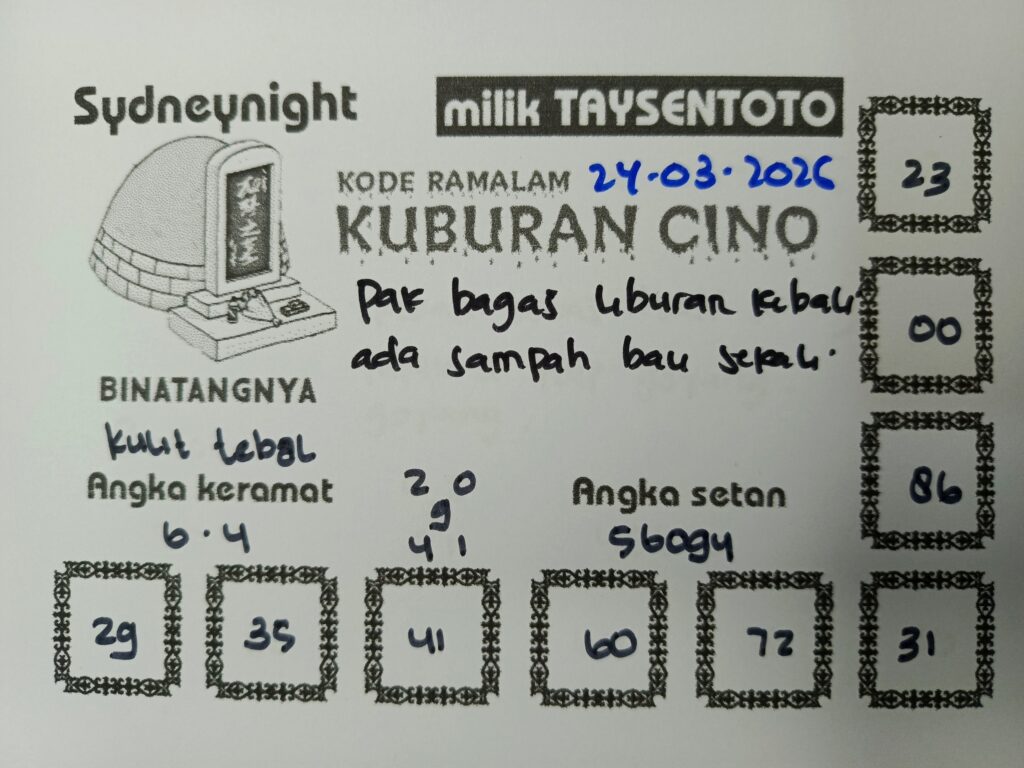 Sydneynight
milik TAYSENTOTO
KODE RAMALAM 24-03-2026
KUBURAN CINO
Pak bagas liburan kebali
ada sampah bau sekali.
BINATANGNYA
kulit tebal
Angka keramat
6.4
2 0
9
4 1
Angka setan
56094
23
00
86
29
35
41
60
72
31